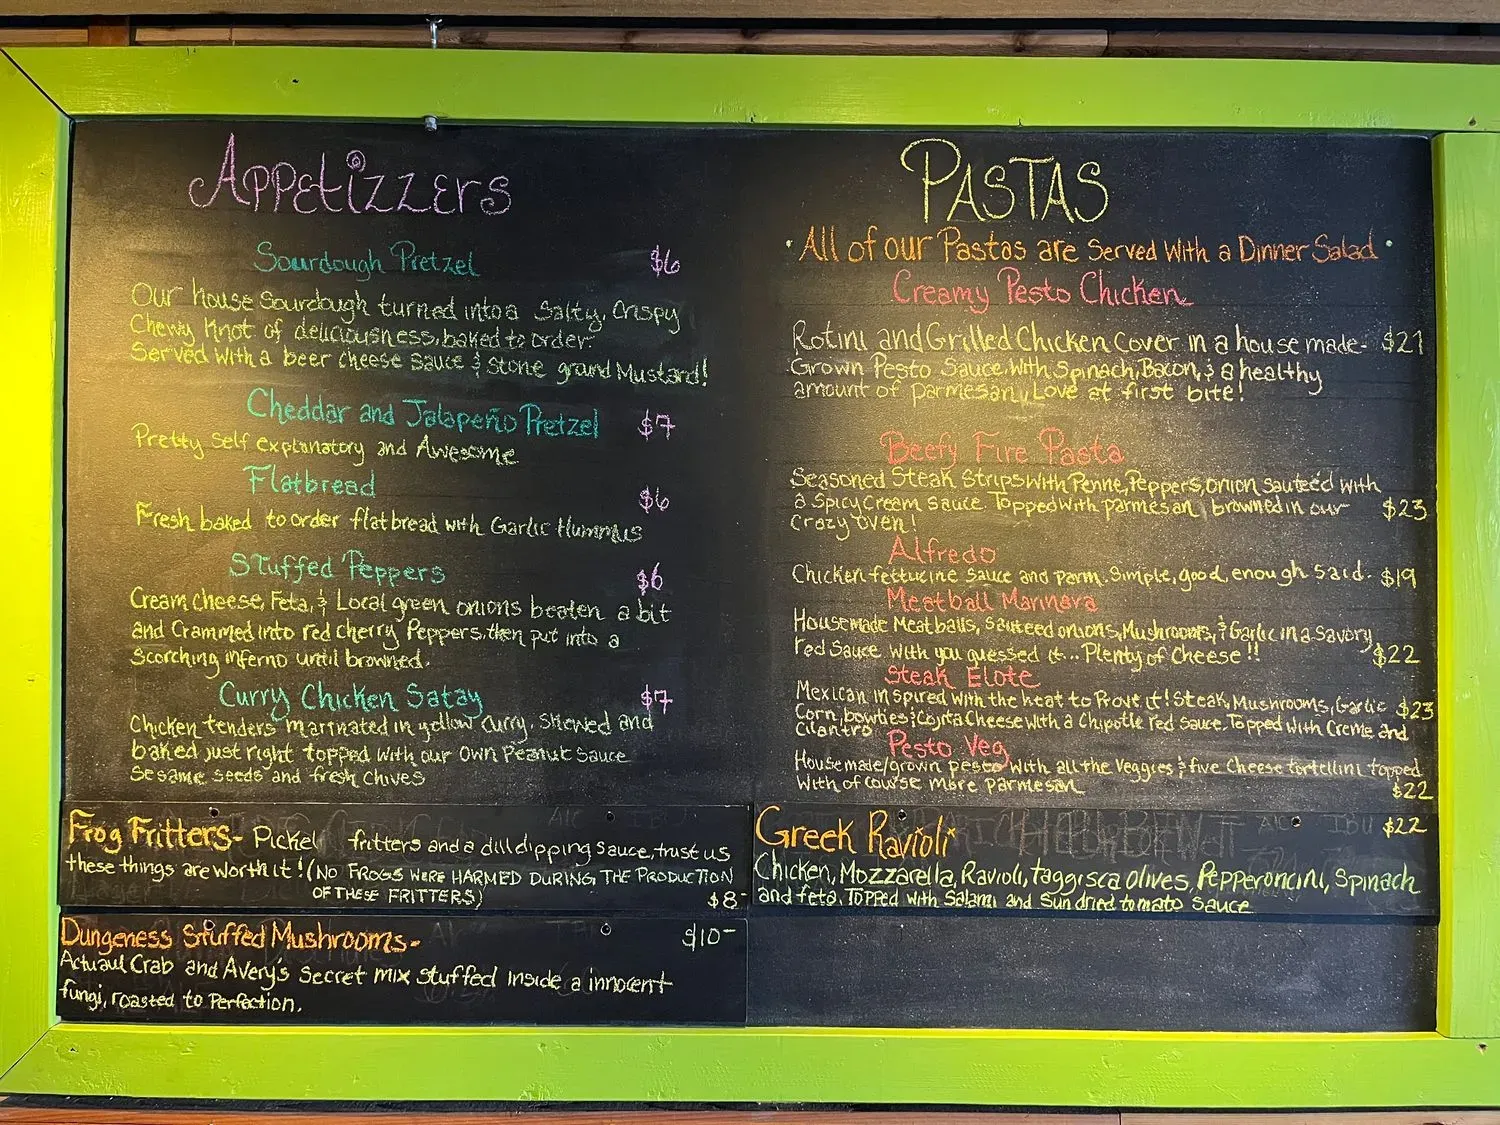 Appetizzers
Sourdough Pretzel $6
Our house Sourdough turned into a Salty, Crispy
Chewy Knot of deliciousness, baked to order.
Served with a beer cheese Sauce & Stone grand Mustard!
Cheddar and Jalapeño Pretzel $7
Pretty Self explanatory and Awesome
Flatbread $6
Fresh baked to order flatbread with Garlic Hummus
Stuffed Peppers $6
Cream Cheese, Feta, & Local green onions beaten a bit
and Crammed into red cherry Peppers, then put into a
Scorching inferno until browned.
Curry Chicken Satay $7
Chicken tenders marinated in yellow curry. Skewed and
baked just right topped with our own Peanut Sauce
Sesame seeds and fresh chives
Frog Fritters- Pickel fritters and a dill dipping sauce, trust us
these things are worth it! (No FROGS WERE HARMED DURING THE PRODUCTION
OF THESE FRITTERS) $8-
Dungeness Stuffed Mushrooms- $10-
Actuaul Crab and Avery's Secret mix stuffed inside a innocent
fungi, roasted to Perfection.
PASTAS
· All of our Pastas are Served with a Dinner Salad ·
Creamy Pesto Chicken
Rotini and Grilled Chicken Cover in a house made- $21
Grown Pesto Sauce with Spinach, Bacon, & a healthy
amount of parmesan, Love at first bite!
Beefy Fire Pasta
Seasoned Steak Strips with Penne, Peppers, onion sauteéd with
a Spicy Cream Sauce Topped with parmesan, browned in our $23
Crazy oven!
Alfredo
Chicken fettucine sauce and parm. Simple, good, enough said. $19
Meatball Marinera
Housemade Meatballs, Sauteed onions, Mushrooms, & Garlic in a Savory
red Sauce with you guessed it... Plenty of Cheese!! $22
Steak Elote
Mexican inspired with the heat to Prove it! Steak, Mushrooms, Garlic $23
Corn, bowties & Cojita Cheese with a Chipotle red Sauce. Topped with Creme and
Cilantro
Pesto Veg
House made/grown pesto with all the Veggies & five Cheese tortellini topped
with of course more parmesan $22
Greek Ravioli $22
Chicken, Mozzarella, Ravioli, taggisca olives, Pepperoncini, Spinach
and feta. Topped with Salami and Sun dried tomato Sauce